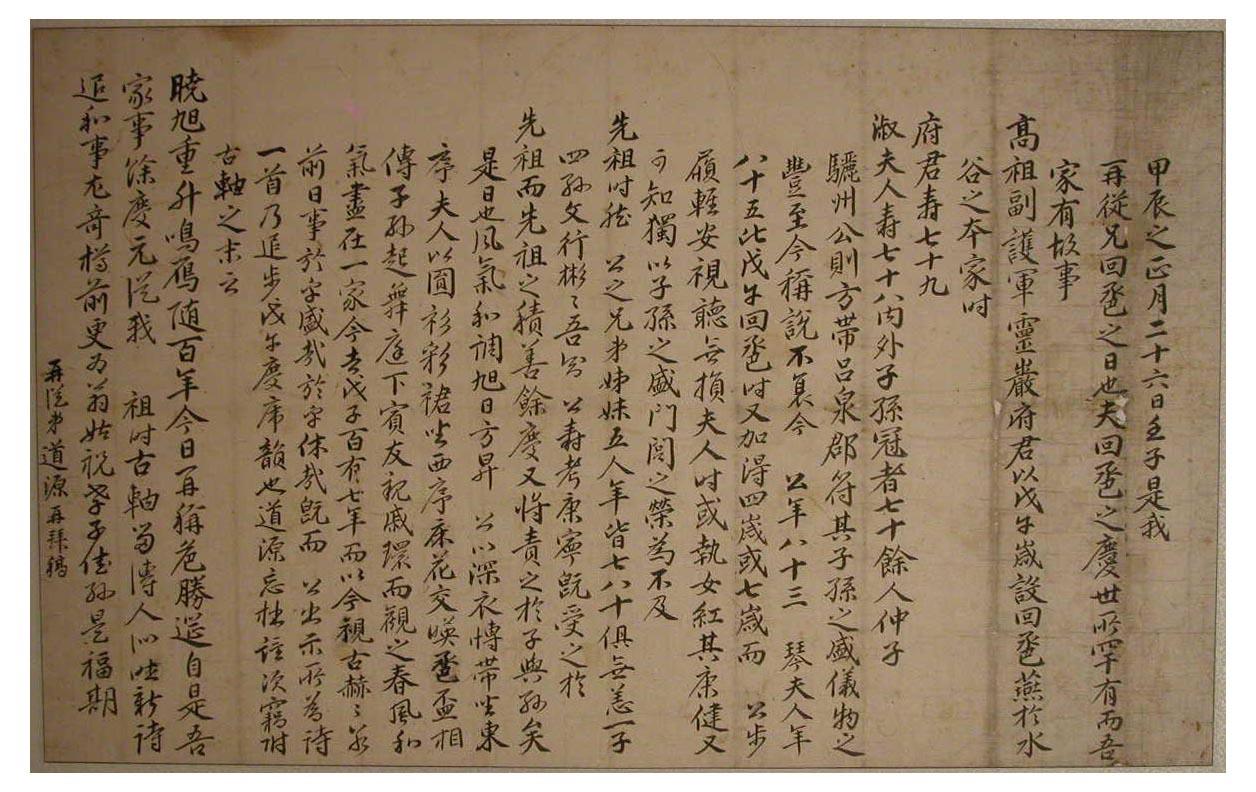 甲辰之正月二十六日壬子是我
再從兄回巹之日也夫回巹之慶世所罕有而吾
家有故事
高祖副護軍靈巖府君以戊午歲設回巹燕於水
谷之本家時
府君壽七十九
淑夫人壽七十八內外子孫冠者七十餘人仲子
驪州公則方帶呂泉郡符其子孫之盛儀物之
豐至今稱說不衰今 公年八十三 琴夫人年
八十五比戊午回巹時又加得四歲或七歲而 公步
履輕安視聽無損夫人時或執女紅其康健又
可知獨以子孫之盛門閥之榮為不及
先祖時然 公之兄弟姊妹五人年皆七八十俱無恙一子
四孫文行彬〻吾知 公壽考康寧旣受之於
先祖而先祖之積善餘慶又將責之於子與孫矣
是日也風氣和調旭日方昇 公以深衣博帶坐東
序夫人以圓衫彩裙坐西序床花交暎巹盃相
傳子孫起舞庭下賓友親戚環而觀之春風和
氣盡在一家今去戊子百有七年而以今視古赫〻若
前日事於乎盛哉於乎休哉旣而 公出示所爲詩
一首乃追步戊午慶席韻也道源忘拙謹次竊附
古軸之末云
曉旭重升鳴鴈隨百年今日再稱巵勝筵自是吾
家事餘慶元從我 祖時古軸留傳人以吐新詩
追和事尤奇樽前更爲翁姑祝孝子佳孫是福期
再從弟道源再拜稿